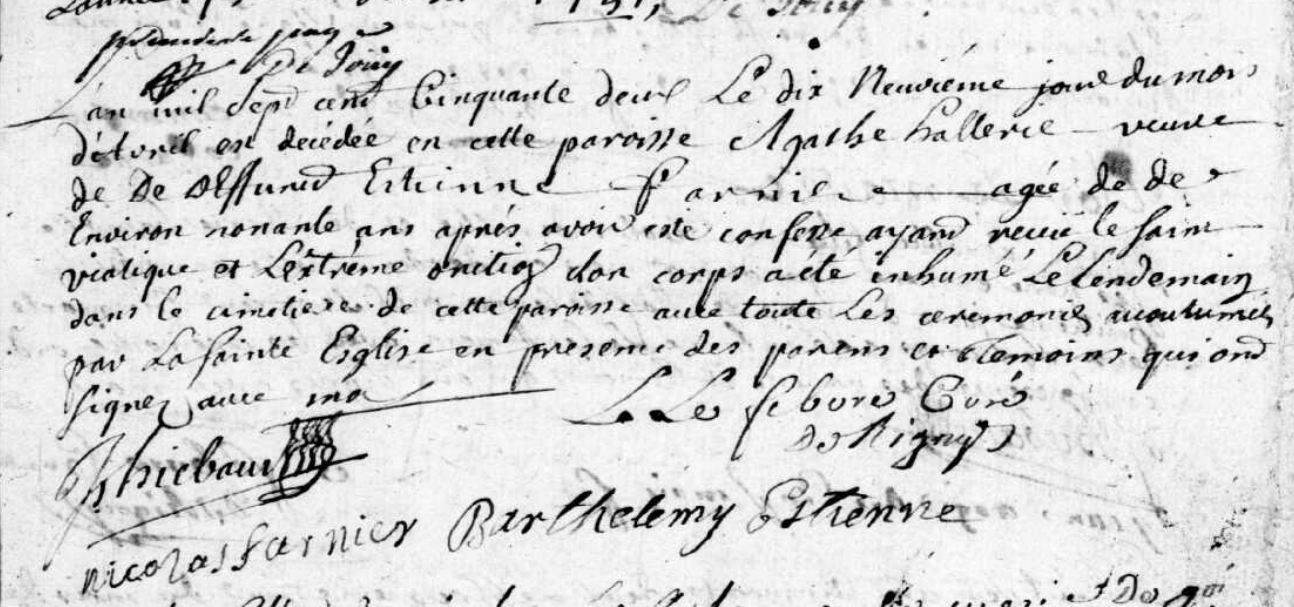 De Joüy
L'an mil sept cent Cinquante deux Le dix Neuvieme jour du mois
d'Avril est decédée en cette paroisse Agathe hallerie veuve
de De deffunct Estienne farnier agée de de
Environ nonante ans aprés avoir esté confessé ayant reçüe le saint
viatique et L'extrême onction don corps a été inhumé Le Lendemain
dans le cimetiere de cette paroisse avec toute Les ceremonies acoutumées
par La sainte Esglise en presence des parens et Temoins qui ond
signez avec moi
L. Le febvre Curé
de Rigny
Thiebaut
nicolas farnier Barthelemy Estienne